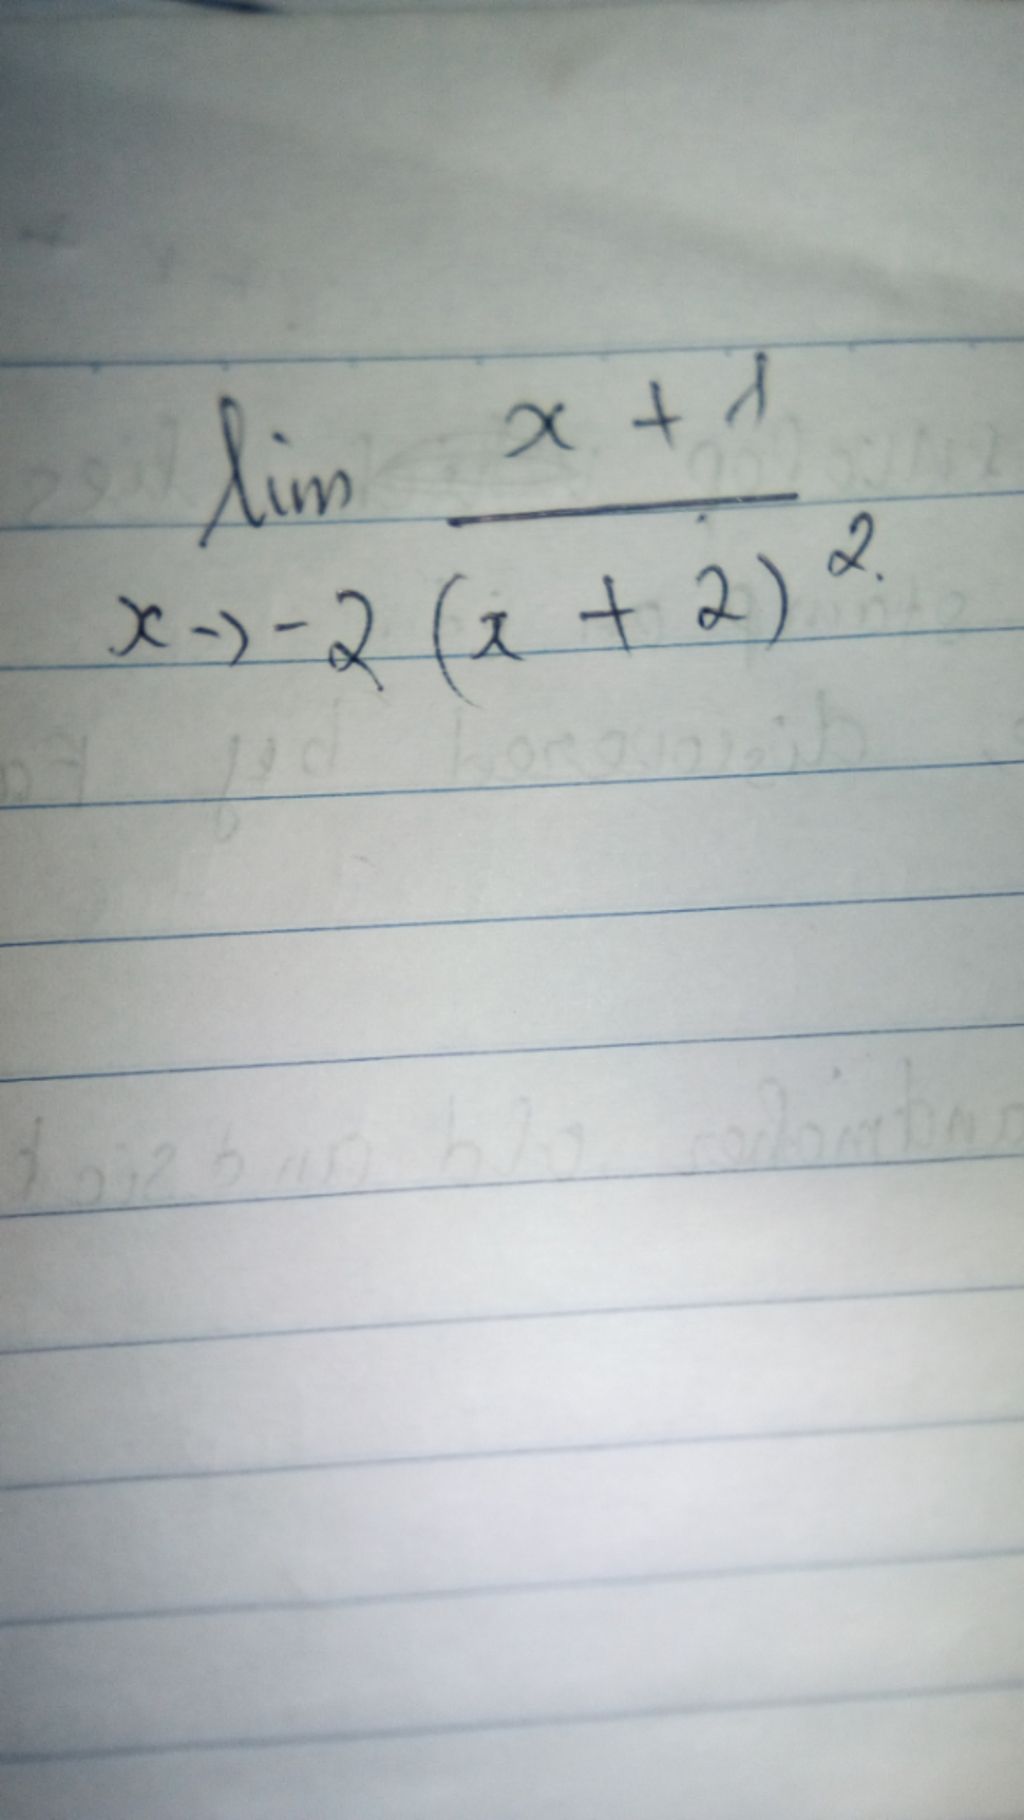 lim x + 1
x → -2 (x + 2)².